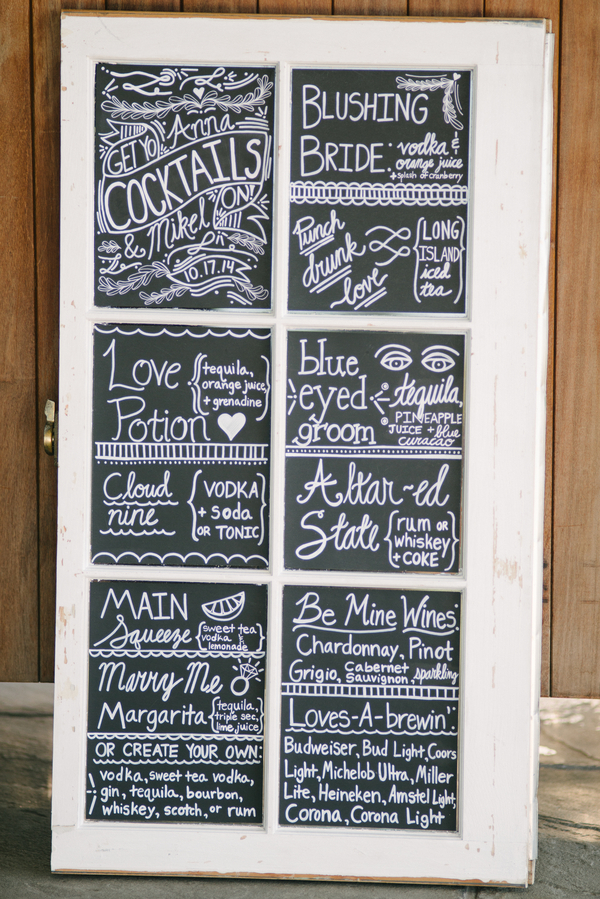 Anna
GET YO
COCKTAILS
ON!
& Mikel
10.17.14
BLUSHING
BRIDE: vodka &
orange juice
+ splash of cranberry
Punch
drunk
love
LONG
ISLAND
iced
tea
Love
Potion
tequila,
orange juice
+ grenadine
Cloud
nine
VODKA
+ soda
OR TONIC
blue
eyed
groom
tequila,
PINEAPPLE
JUICE + blue
curacao
Altar-ed
State
rum OR
whiskey
+ COKE
MAIN
Squeeze
sweet tea
vodka &
lemonade
Marry Me
Margarita
tequila,
triple sec,
lime juice
OR CREATE YOUR OWN:
vodka, sweet tea vodka,
gin, tequila, bourbon,
whiskey, scotch, or rum
Be Mine Wines:
Chardonnay, Pinot
Grigio, Cabernet
Sauvignon, sparkling
Loves-A-brewin'
Budweiser, Bud Light, Coors
Light, Michelob Ultra, Miller
Lite, Heineken, Amstel Light,
Corona, Corona Light